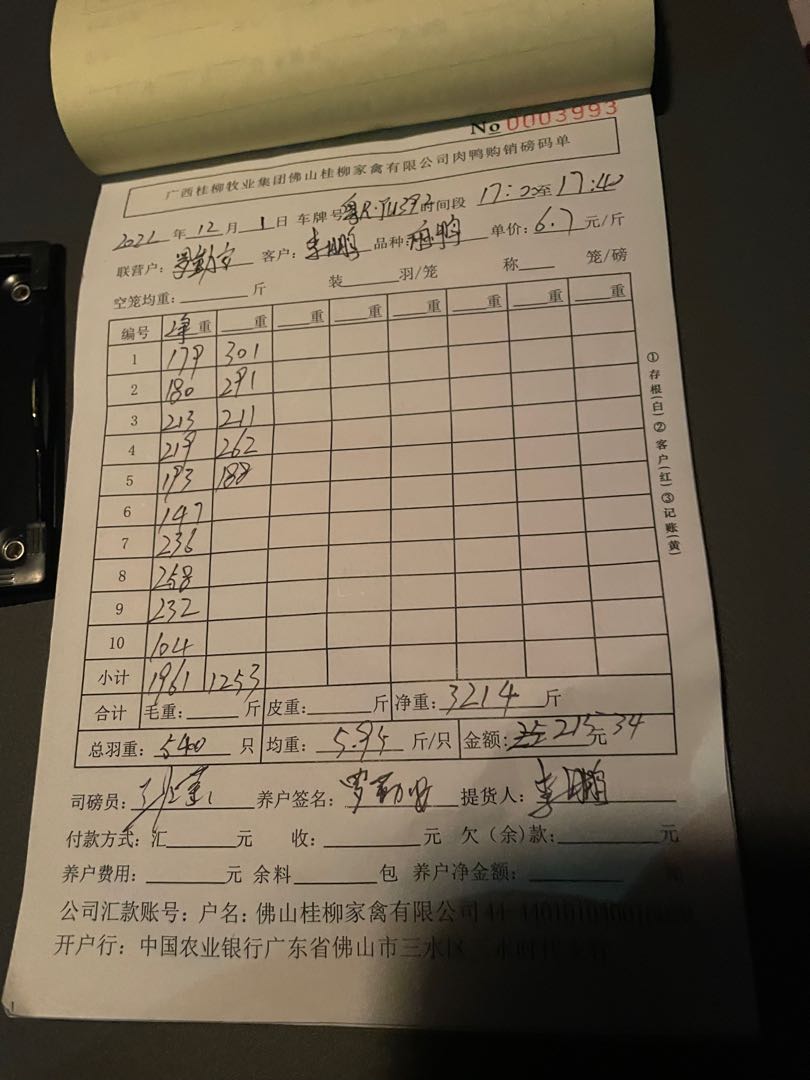 No 0003993
广西桂柳牧业集团佛山桂柳家禽有限公司肉鸭购销磅码单
2022 年 12 月 1 日 车牌号 时间段 17:20至 17:40
联营户: 客户: 李鹏 品种: 鸭 单价: 6.7 元/斤
空笼均重: 斤 装 羽/笼 称 笼/磅
编号 净重 重 重 重 重 重 重 重
1 179 301
2 180 291
3 213 211
4 219 262
5 193 188
6 147
7 236
8 258
9 232
10 104
小计 1961 1253
合计 毛重: 斤 皮重: 斤 净重: 3214 斤
总羽重: 540 只 均重: 5.95 斤/只 金额: 215 34 元
司磅员: 养户签名: 罗勤 提货人: 李鹏
付款方式: 汇 元 收: 元 欠(余)款: 元
养户费用: 元 余料 包 养户净金额:
公司汇款账号: 户名: 佛山桂柳家禽有限公司 44
开户行: 中国农业银行广东省佛山市三水区
①存根(白)②客户(红)③记账(黄)